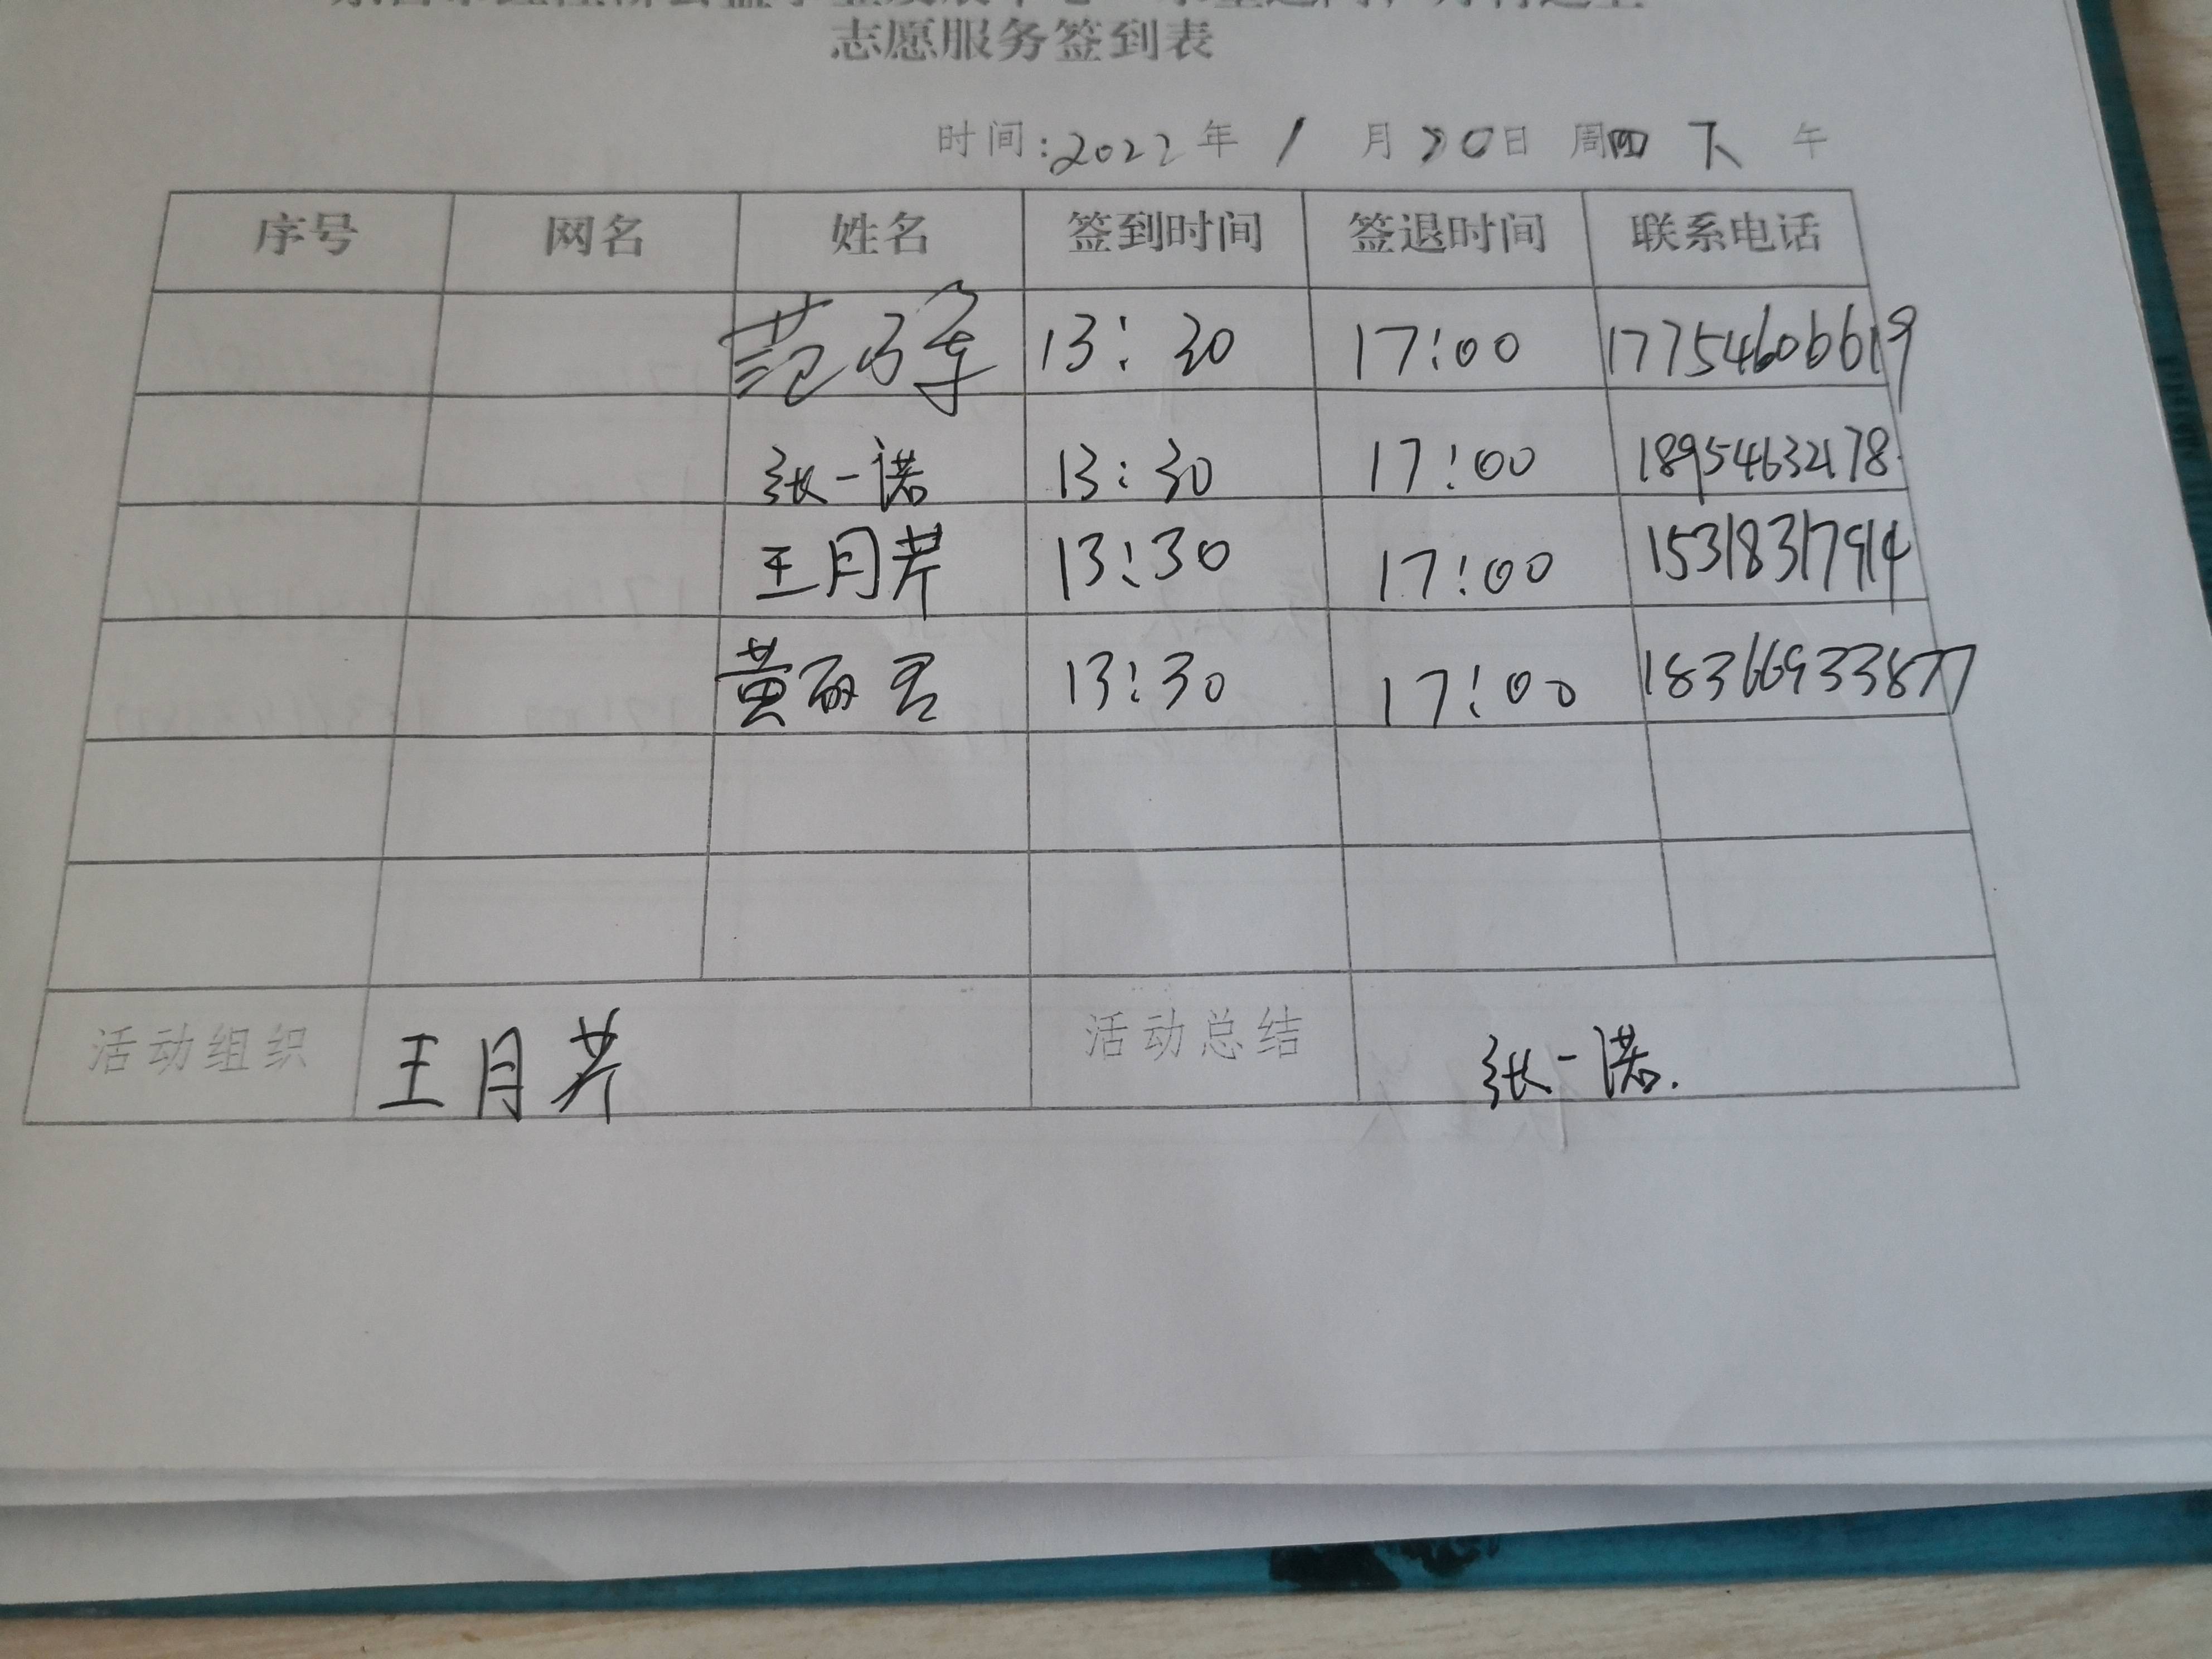 志愿服务签到表
时间:2022年1月20日 周四 下午
序号 网名 姓名 签到时间 签退时间 联系电话
范 13:30 17:00 17754606619
张一诺 13:30 17:00 18954632178
王月芹 13:30 17:00 15318317914
黄丽君 13:30 17:00 18366933877
活动组织 王月芹 活动总结 张一诺.